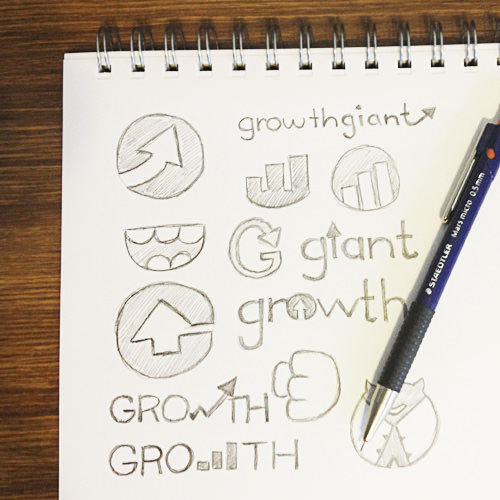 growthgiant
G giant
growth
GROWTH
GROWTH
STAEDTLER Mars micro 0.5 mm